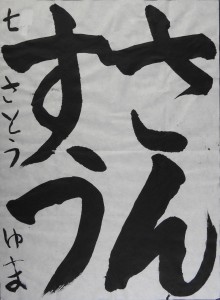 さん
すう
七 さとう ゆま